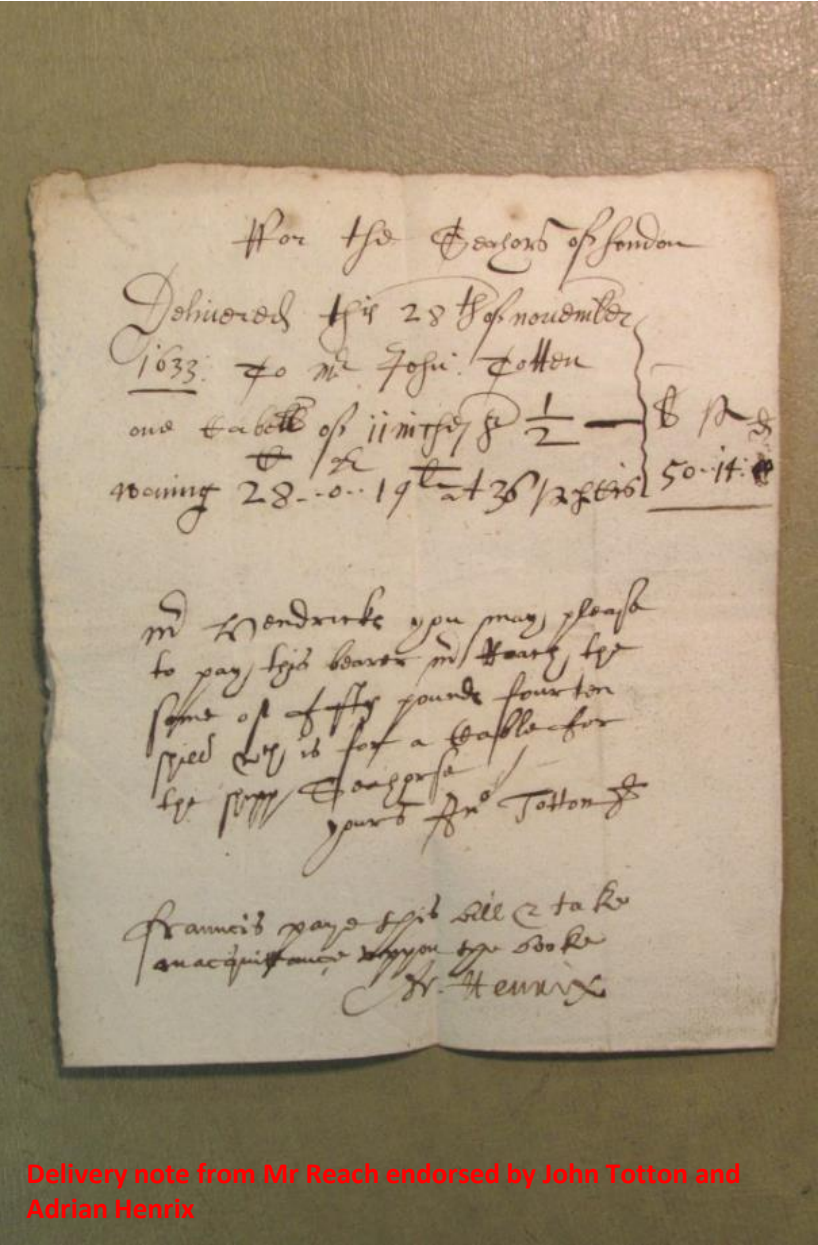 ffor the Seahors of London
Delivered this 28th of november
1633: To Mr John: Totten
one Cabell of 11 inches & 1/2 — li s d
C q
waing 28--0--19 li at 36 s 50--14:
Mr Hendricks you may please
to pay this bearer Mr Reach the
some of fifty pounds fourten
shill wch is for a Cable for
the shipp Seahorse
yours Jno Totton
Frauncis paye this bill & take
an acquittance uppon the booke
Ar. Henrix
Delivery note from Mr Reach endorsed by John Totton and
Adrian Henrix